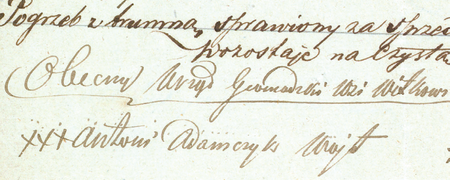 Pogrzeb z trumną, sprawiony za sprzed
pozostaje na Czysta
(Obecny Urząd Gromadzki Wsi Witkowi
XXX Antoni Adamczyk Wójt